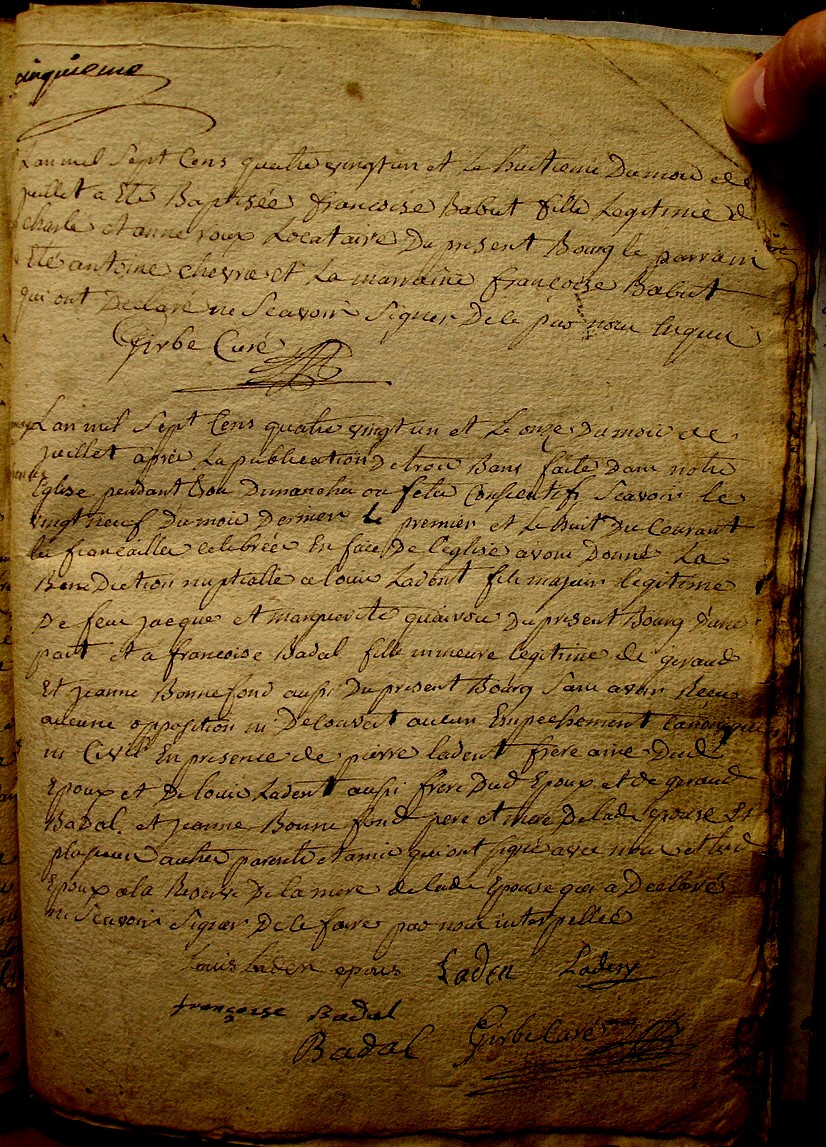 cinquieme
L'an mil Sept Cens quatre vingt un et Le huitieme Du mois de
juillet a Eté Baptisée francoise Babut fille Legitime de
charle et anne roux Locataire Du present Bourg le parrain
a Eté antoine chevrae et La marraine francoise Babut
qui ont Declaré ne Scavoir Signer De le par nous
Girbe Curé
L'an mil Sept Cens quatre vingt un et Le onze Du mois de
juillet après La publication De trois Bans faite Dans notre
Eglise pendant trois Dimanches ou fetes Consecutifs Scavoir le
vingt neuf Du mois Dernier Le premier et Le huit Du Courant
les fiancailles celebrées En face De l'eglise avons Donné La
Benediction nuptialle a louis Ladent fils majeur legitime
De feu jacque et marguerite quairou Du present Bourg D'une
part et a francoise Badal fille mineure legitime de geraud
et jeanne Bonnefond aussi Du present Bourg Sans avoir Recu
aucune opposition ni Decouvert aucun Empechement Canonique
ni Civil En presence de pierre ladent frere aine Dud
Epoux et De louis Ladent aussi frere Dud Epoux et de geraud
Badal et jeanne Bonne fond pere et mere De lade epouse Et
plusieurs autres parents et amis qui ont signé avec nous et led
Epoux a la Reserve De la mere de lade Epouse qui a Declaré
ne Scavoir Signer De le faire par nous interpellée
Louis Laden epous Laden Laden
francoise Badal
Badal Girbe Curé